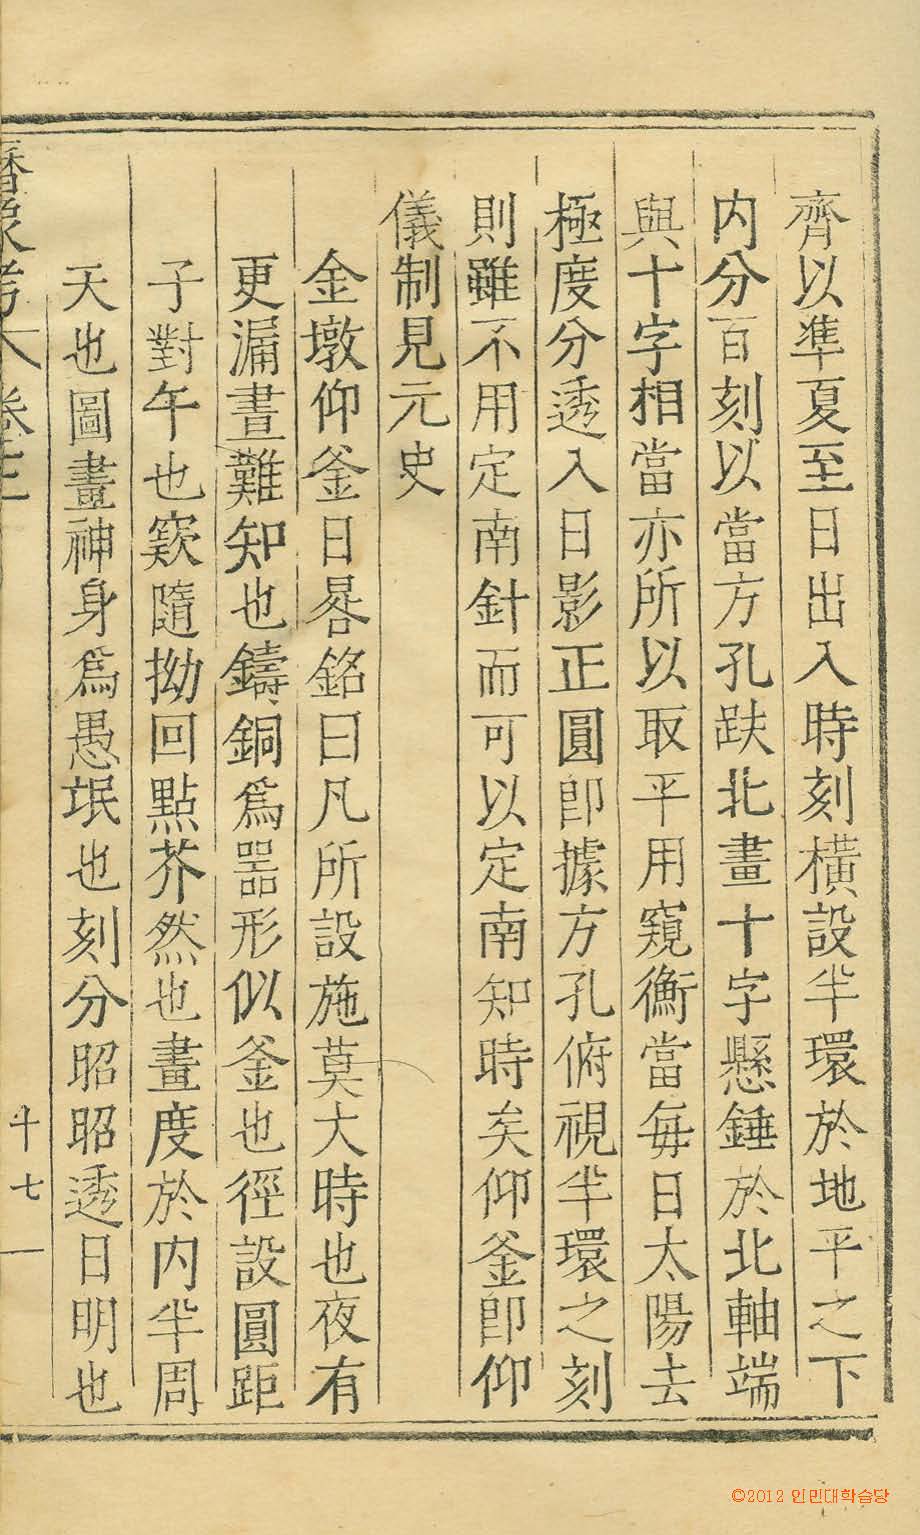 齊以準夏至日出入時刻橫設半環於地平之下
内分百刻以當方孔趺北畫十字懸錘於北軸端
與十字相當亦所以取平用窺衡當每日太陽去
極度分透入日影正圓卽據方孔俯視半環之刻
則雖不用定南針而可以定南知時矣仰釜卽仰
儀制見元史
金墩仰釜日晷銘曰凡所設施莫大時也夜有
更漏晝難知也鑄銅爲器形似釜也徑設圓距
子對午也窾隨拗回點芥然也畫度於内半周
天也圖畫神身爲愚氓也刻分昭昭透日明也
十七
©2012 인민대학습당